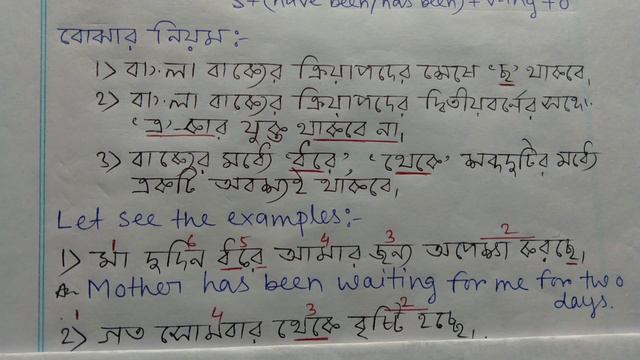 S+(have been/has been)+V-ing+O
বোঝার নিয়ম:-
1) বাংলা বাক্যের ক্রিয়াপদের শেষে 'ছ' থাকবে,
2) বাংলা বাক্যের ক্রিয়াপদের দ্বিতীয়বর্নের সঙ্গে
'এ'-কার যুক্ত থাকবে না,
3) বাক্যের মধ্যে 'ধরে', 'থেকে' শব্দদুটির মধ্যে
একটি অবশ্যই থাকবে,
Let see the examples:-
1 6 5 4 3 2
1) মা দুদিন ধরে আমার জন্য অপেক্ষা করছে,
Mother has been waiting for me for two
days.
1 4 3 2
2) গত সোমবার থেকে বৃষ্টি হচ্ছে,